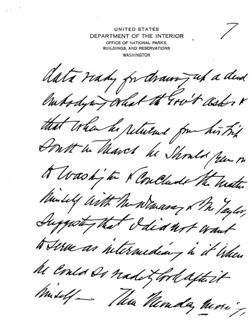 7
UNITED STATES
DEPARTMENT OF THE INTERIOR
OFFICE OF NATIONAL PARKS,
BUILDINGS, AND RESERVATIONS
WASHINGTON
data ready for drawing up a deed
embodying what the Gov't asks &
that when he returned from his trip
South in March he should run on
to Washington & conclude the matter
himself with Mr & Mr Taylor,
suggesting that I did not want
to serve as intermediary in it when
he could so readily look after it
himself — Then Monday